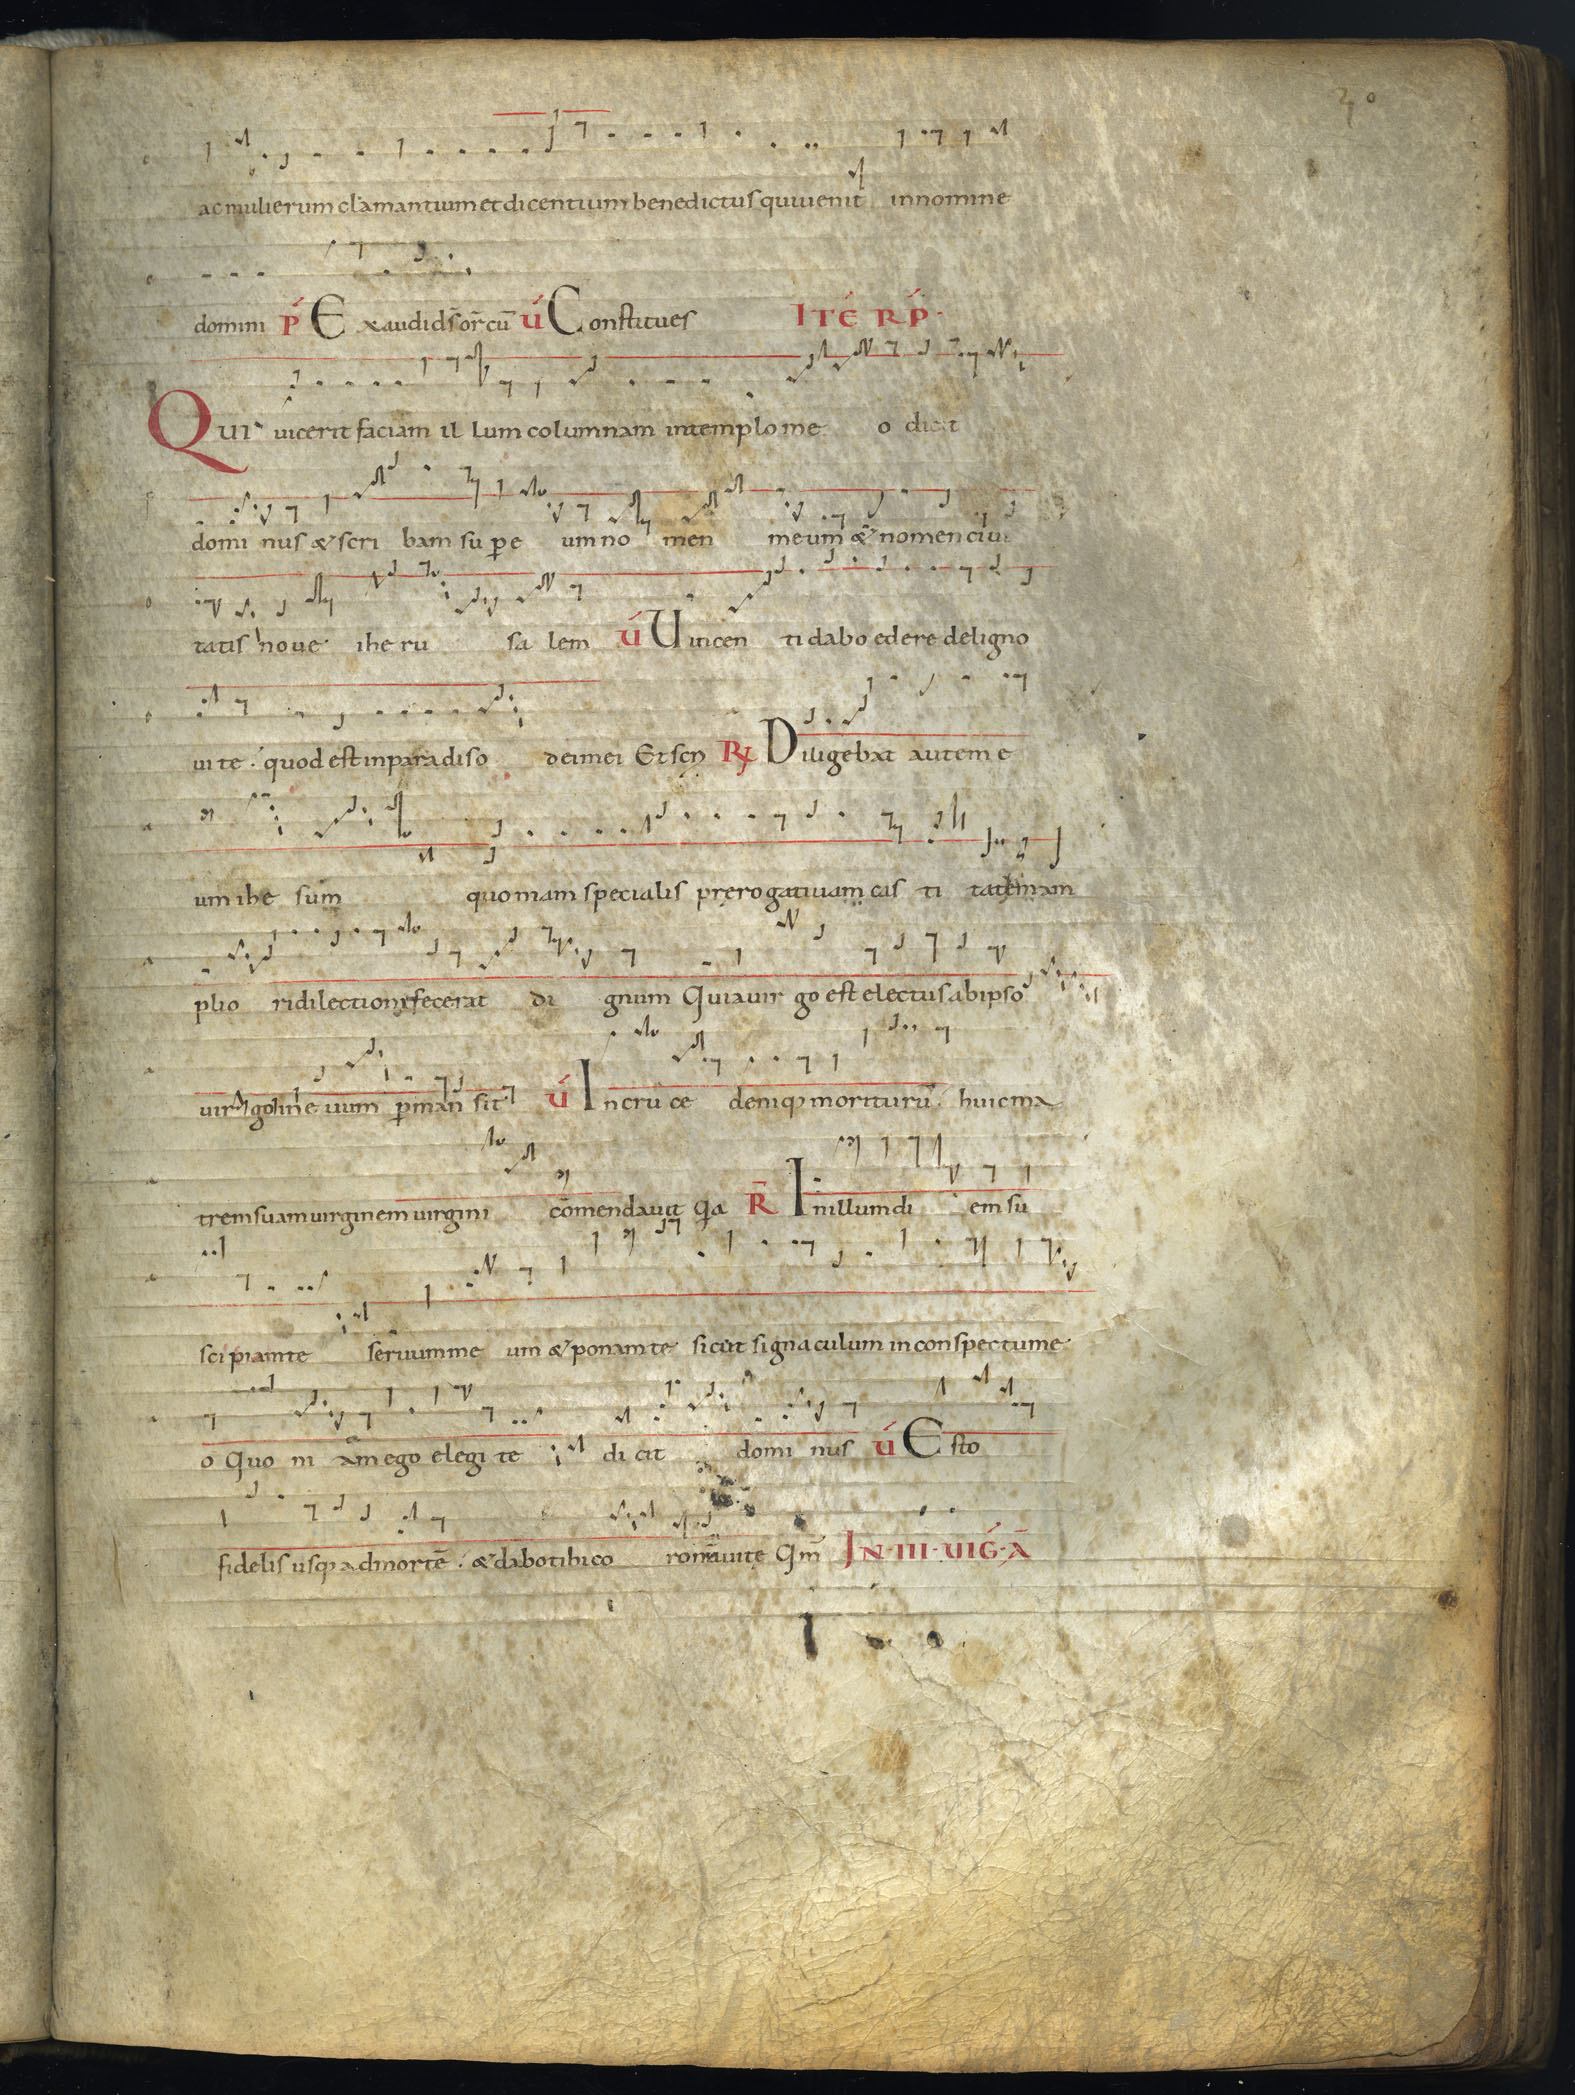 40
ac mulierum clamantium et dicentium benedictus qui uenit in nomine
domini P̄ Exaudi ds or̄ cū V́ Constitues ITĒ RP̄.
Qui uicerit faciam illum columnam in templo meo dicit
dominus & scribam super eum nomen meum & nomen ciui
tatis noue iherusalem V́ Uincenti dabo edere de ligno
uite. quod est in paradiso dei mei Et scn̄ R̄ Diligebat autem e
um ihesum quoniam specialis prerogatiua castitatis am
pliori dilectione fecerat dignum Quia uirgo est electus ab ipso
uirgo in euum p̄mansit V́ In cruce deniq; moriturū. huic ma
trem suam uirginem uirgini cōmendauit Q̄a R̄ In illum diem su
scipiam te seruum meum & ponam te sicut signaculum in conspectu me
o Quoniam ego elegi te dicit dominus V́ Esto
fidelis usq; ad mortē. & dabo tibi coronam uite Qm̄ IN·III·VIĜ·Ā